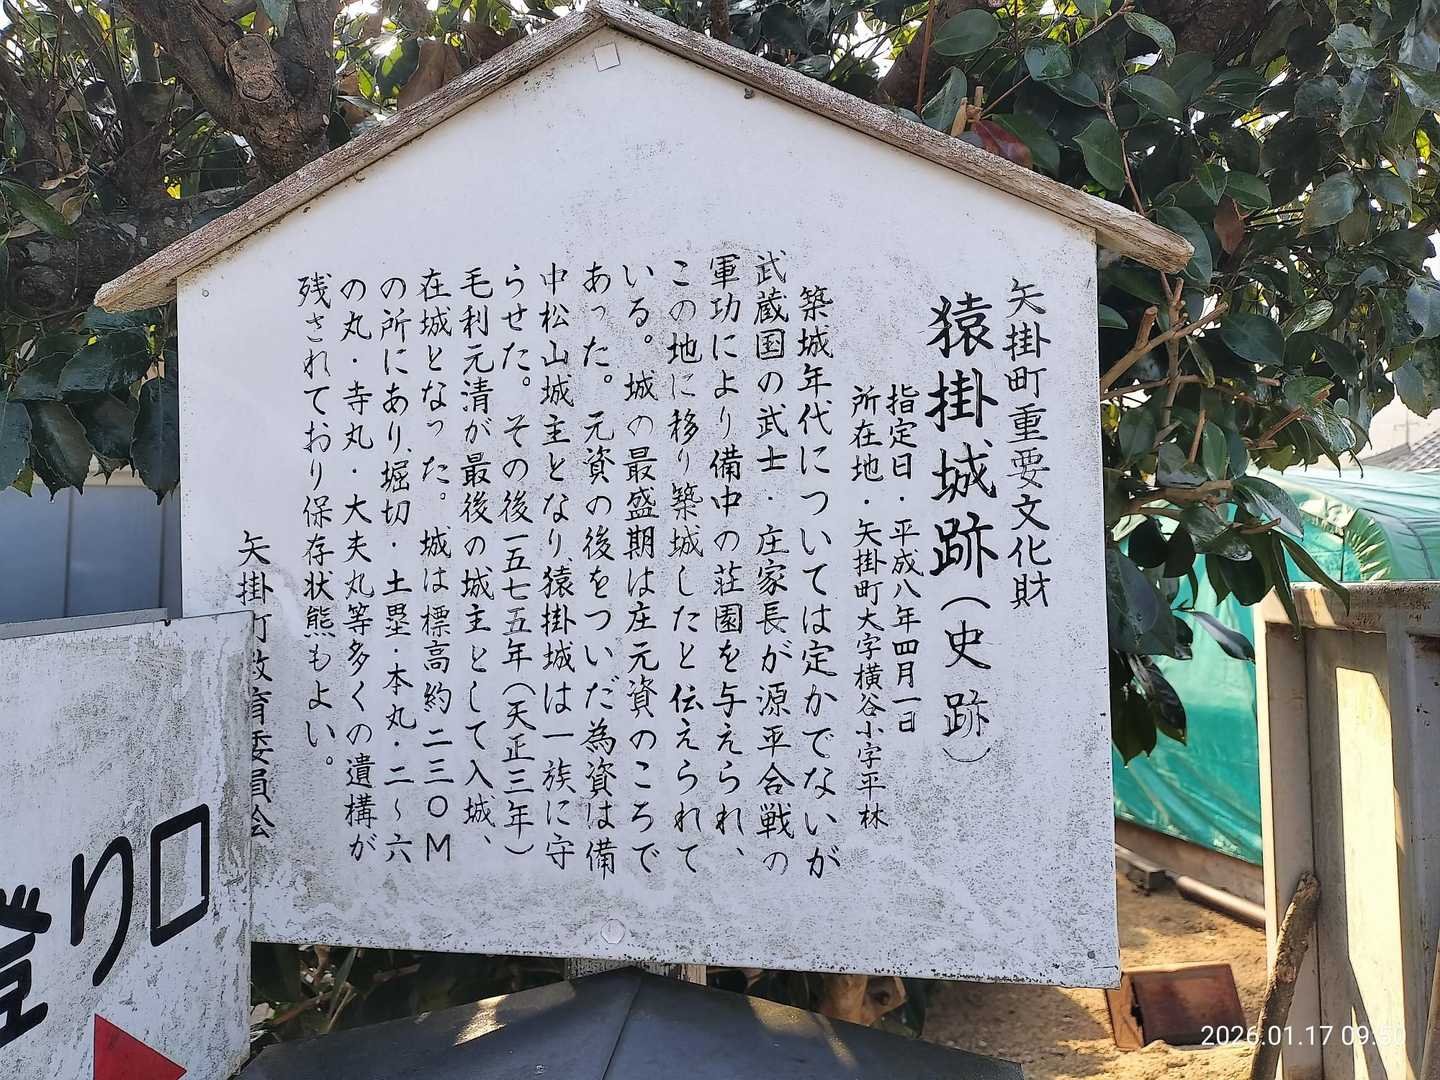 矢掛町重要文化財
猿掛城跡(史跡)
指定日・平成八年四月一日
所在地・矢掛町大字横谷小字平林
築城年代については定かでないが
武蔵国の武士・庄家長が源平合戦の
軍功により備中の荘園を与えられ、
この地に移り築城したと伝えられて
いる。城の最盛期は庄元資のころで
あった。元資の後をついだ為資は備
中松山城主となり、猿掛城は一族に守
らせた。その後一五七五年(天正三年)
毛利元清が最後の城主として入城、
在城となった。城は標高約二三〇M
の所にあり、堀切・土塁・本丸・二〜六
の丸・寺丸・大夫丸等多くの遺構が
残されており保存状熊もよい。
矢掛町教育委員会
登り口
2026.01.17 09:50